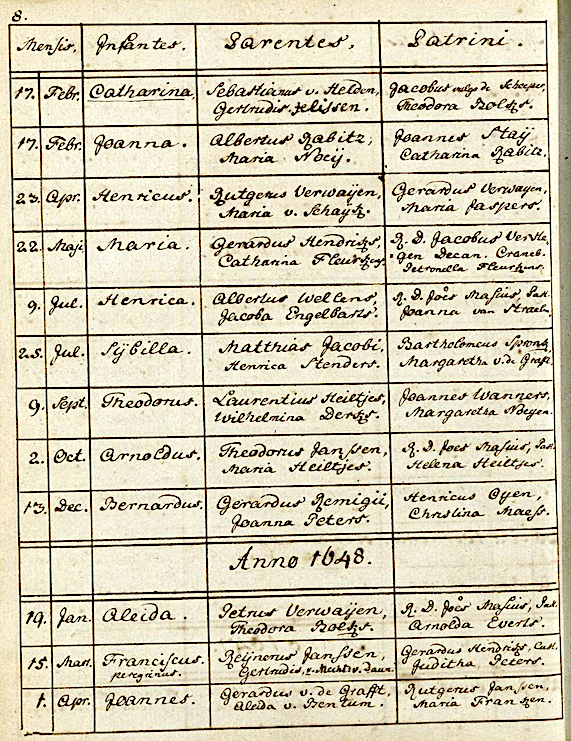 8.
Mensis. Infantes. Parentes. Patrini.
17. Febr. Catharina, Sebastianus v. Helden, Jacobus vulgo de Scheeper,
Gertrudis Jelissen. Theodora Rolkes.
17. Febr. Joanna. Albertus Rabitz, Joannes Staij
Maria Noeij. Catharina Rabitz.
23. Apr. Henricus. Rutgerus Verwaijen, Gerardus Verwaijen,
Maria v. Schaijk. Maria Jaspers.
22. Maji Maria. Gerardus Hendriks, R. D. Jacobus Verste-
Catharina Fleurkens gen Decan. Craneb.
Petronella Fleurkens.
9. Jul. Henrica. Albertus Wellens, R. D. Joes Masius Past.
Jacoba Engelbarts. Joanna van Straeln.
25. Jul. Sÿbilla. Matthias Jacobi, Bartholomeus Spronk,
Henrica Stenders. Margaretha v. de Grafft.
9. Sept. Theodorus. Laurentius Heiltjes, Joannes Wanners,
Wilhelmina Derks. Margaretha Noeyen.
2. Oct. Arnoldus. Theodorus Janssen, R. D. Joes Masius, Past.
Maria Heiltjes. Helena Heiltjes.
13. Dec. Bernardus. Gerardus Remigii, Henricus Oyen,
Joanna Peters. Christina Maess.
Anno 1648.
19. Jan. Aleida. Petrus Verwaijen, R. D. Joes Masius, Past.
Theodora Rolkes. Arnolda Everts.
15. Mart. Franciscus. Reijnerus Janssen, Gerardus Hendriks, Cust.
peregrinus. Gertrudis, Juditha Peters.
1. Apr. Joannes. Gerardus v. de Grafft, Rutgerus Janssen,
Aleida v. Bentum. Maria Franken.